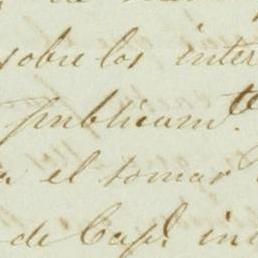 de
sobre los inter
publicam.te
a el tomar
de Cap.l in